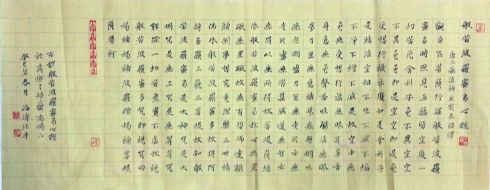 般若波羅蜜多心經
唐三藏法師玄奘奉詔譯
觀自在菩薩行深般若波羅
蜜多時照見五蘊皆空度一
切苦厄舍利子色不異空空
不異色色即是空空即是色
受想行識亦復如是舍利子
是諸法空相不生不滅不垢
不淨不增不減是故空中無
色無受想行識無眼耳鼻舌
身意無色聲香味觸法無眼
界乃至無意識界無無明亦
無無明盡乃至無老死亦無
老死盡無苦集滅道無智亦
無得以無所得故菩提薩埵
依般若波羅蜜多故心無罣
礙無罣礙故無有恐怖遠離
顛倒夢想究竟涅槃三世諸
佛依般若波羅蜜多故得阿
耨多羅三藐三菩提故知般
若波羅蜜多是大神咒是大
明咒是無上咒是無等等咒
能除一切苦真實不虛故說
般若波羅蜜多咒即說咒曰
揭諦揭諦波羅揭諦波羅僧揭諦菩提
薩婆訶
右抄般若波羅蜜多心經
癸巳年春月